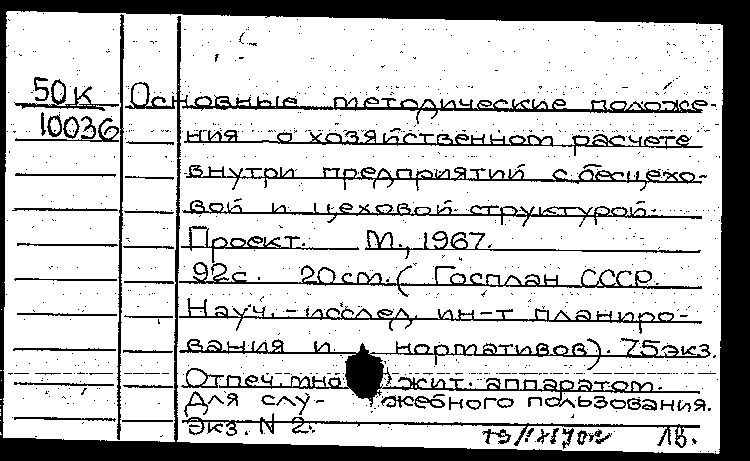 50К Основные методические положе-
10036 ния о хозяйственном расчете
внутри предприятий с бесцехо-
вой и цеховой структурой.
Проект. М., 1967.
92с. 20см. (Госплан СССР.
Науч.-исслед. ин-т планиро-
вания и нормативов). 75экз.
Отпеч. множит. аппаратом.
Для слу- жебного пользования.
Экз. N 2.
1В.